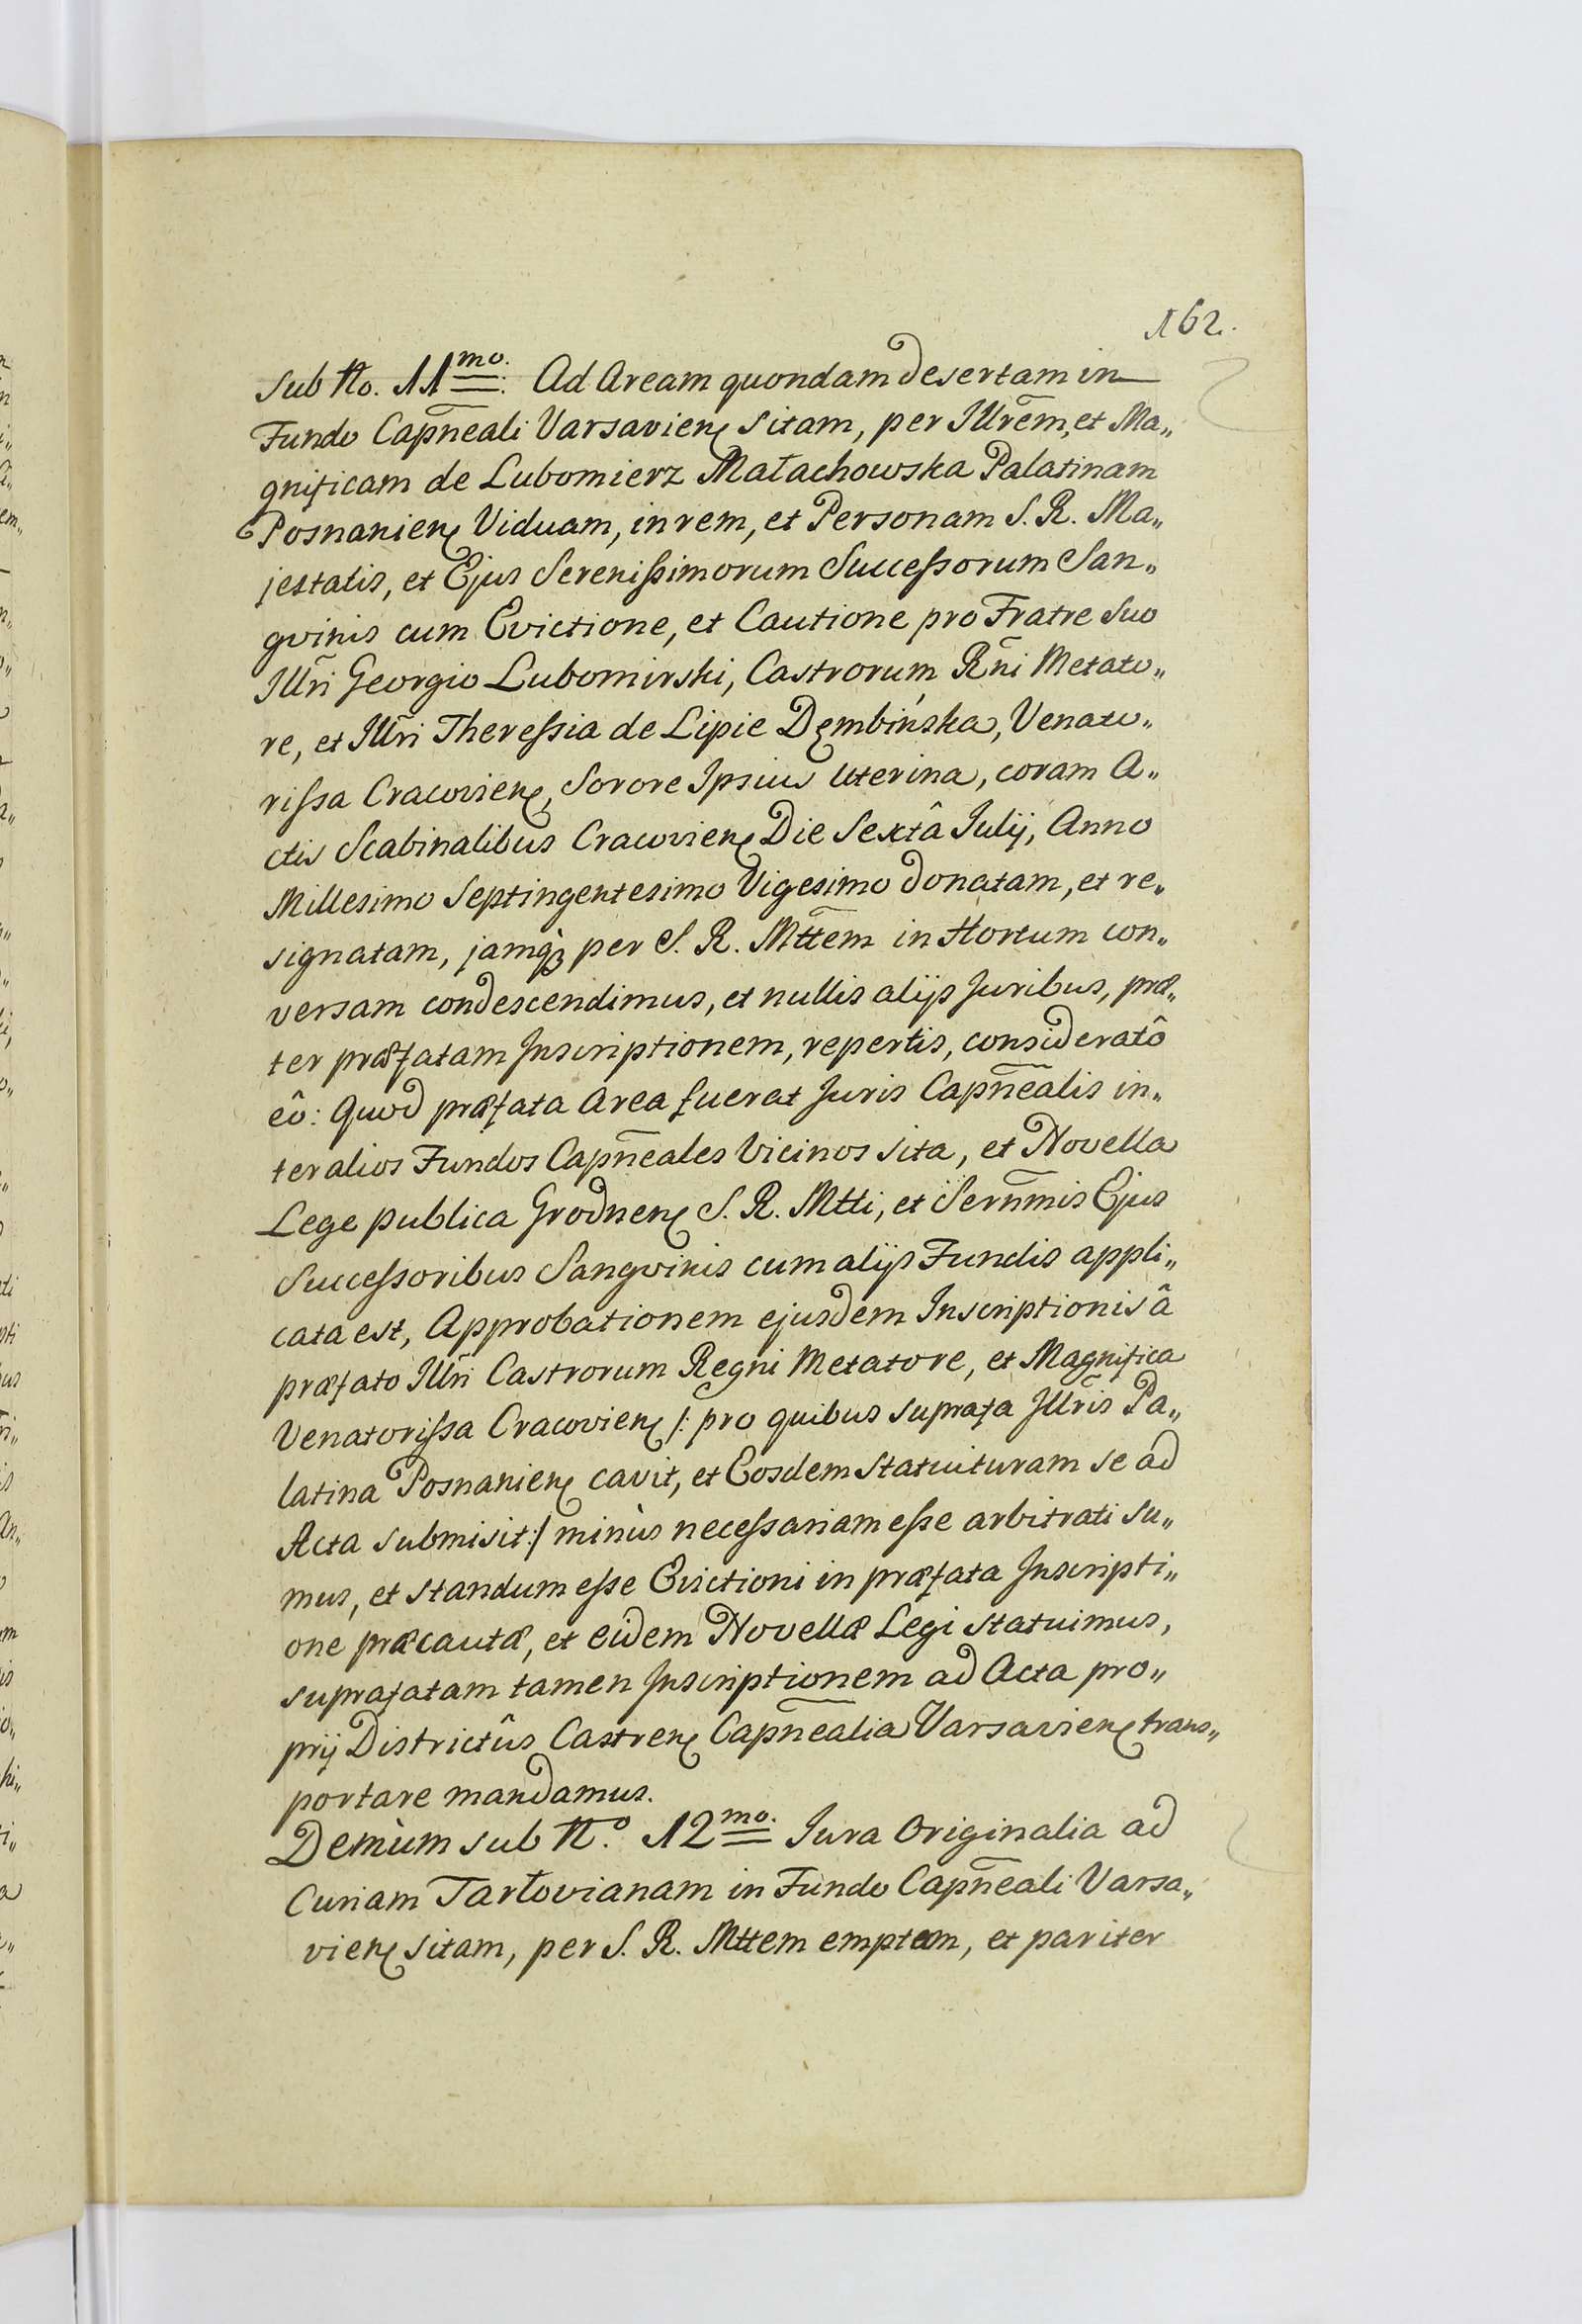 162.
Sub No. 11mo: Ad Aream quondam desertam in
Fundo Capn̄eali Varsavien̨ sitam, per Illrēm, et Ma„
gnificam de Lubomierz Małachowska Palatinam
Posnanien̨ Viduam, in rem, et Personam S. R. Ma„
jestatis, et Ejus Serenißimorum Succeßorum San„
gvinis cum Evictione, et Cautione pro Fratre Suo
Illr̄i Georgio Lubomirski, Castrorum Rn̄i Metato„
re, et Illr̄i Thereßia de Lipie Dęmbińska, Venato„
rißa Cracovien̨, Sorore Ipsius Uterina, coram A„
ctis Scabinalibus Cracovien̨ Die Sextâ Julij, Anno
Millesimo Septingentesimo Vigesimo donatam, et re„
signatam, jamq̀ꝫ per S. R. Mttēm in Hortum con„
versam condescendimus, et nullis alijs Juribus, præ„
ter præfatam Inscriptionem, repertis, consideratô
eô: Quod præfata Area fuerat Juris Capn̄ealis in„
ter alios Fundos Capn̄eales Vicinos sita, et Novella
Lege publica Grodnen̨ S. R. Mtti, et Sern̄mis Ejus
Succeßoribus Sangvinis cum alijs Fundis appli„
cata est, Approbationem ejusdem Inscriptionis â
præfato Illr̄i Castrorum Regni Metatore, et Magnifica
Venatorißa Cracovien̨ /: pro quibus suprafa Illr̄is Pa„
latina Posnanien̨ cavit, et Eosdem Statuituram se ad
Acta submisit :/ minùs neceßariam eße arbitrati su„
mus, et standum eße Evictioni in præfata Inscripti„
one præcautæ, et eidem Novellæ Legi statuimus,
suprafatam tamen Inscriptionem ad Acta pro„
prij Districtûs Castren̨ Capn̄ealia Varsavien̨ trans„
portare mandamus.
Demùm sub N.o 12mo. Jura Originalia ad
Curiam Tarłovianam in Fundo Capn̄eali Varsa„
vien̨ sitam, per S. R. Mttem emptam, et pariter